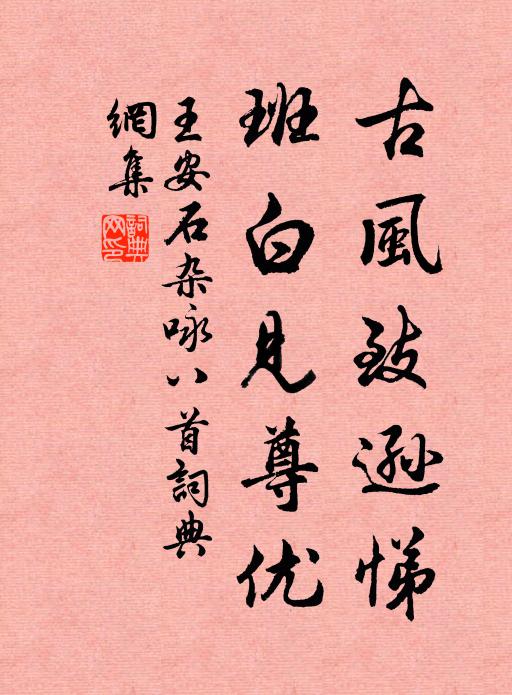 古風致遜悌
班白見尊优
王安石杂咏八首詞典
網集
詞典网印